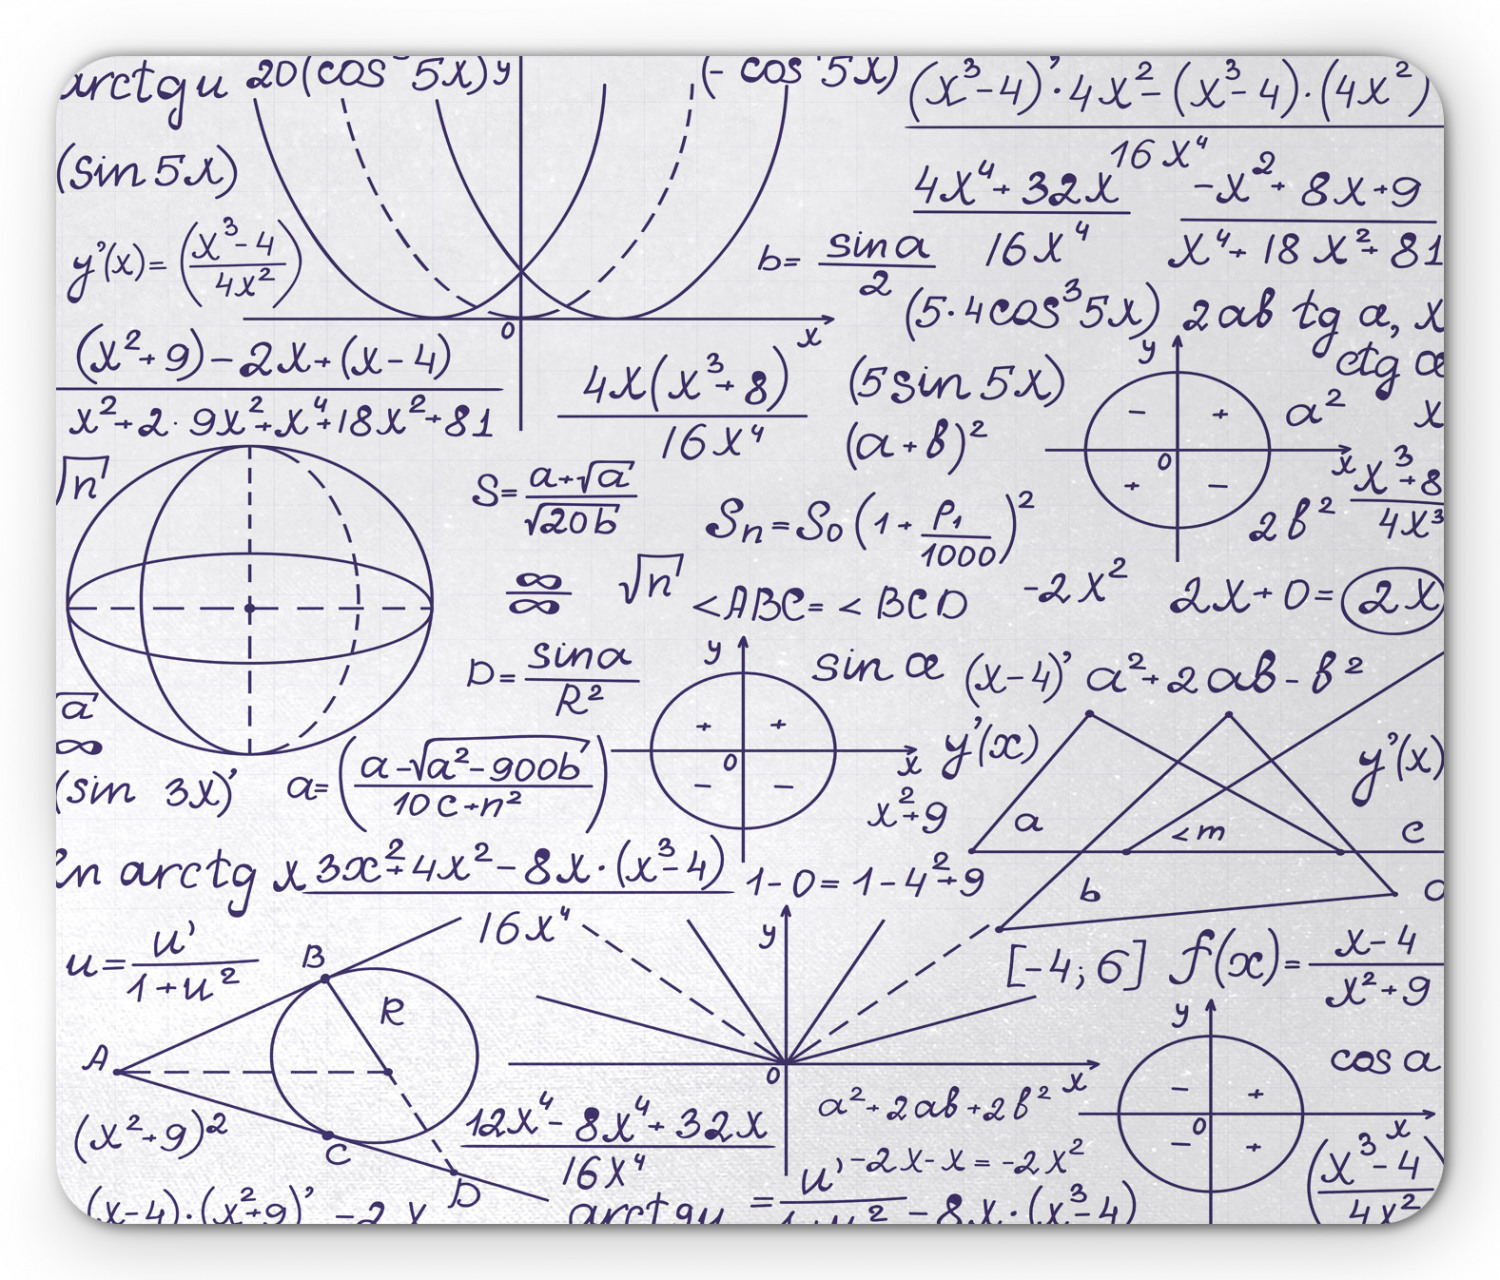 arctgu 20(cos 5x) y (- cos 5x) (x³-4)'·4x²-(x³-4)·(4x²)
16x⁴
(sin 5x)
4x⁴+32x
16x⁴
-x²+8x+9
x⁴+18x²+81
y'(x)=(x³-4 / 4x²)
b= sin a / 2
(5·4cos³5x) 2ab tg a, x
0 x
ctg α
(x²+9)-2x+(x-4)
x²+2·9x²+x⁴+18x²+81
4x(x³+8)
16x⁴
(5sin 5x)
(a+b)²
y
- +
0 x
+ -
a² x
√n
S= a+√a / √20b
Sn=S0(1+ P1 / 1000)²
2b²
x³+8
4x³
∞
∞
√n
<ABC= <BCD
-2x²
2x+0= 2x
D= sinα / R²
y
+ +
0 x
- -
sin α (x-4)' a²+2ab-b²
a
∞
(sin 3x)'
a=(a-√a²-900b / 10c+n²)
y'(x)
x²+9
a
<m
c
b
y'(x)
ln arctg x 3x²+4x²-8x·(x³-4)
16x⁴
1-0=1-4²+9
u= u' / 1+u²
B
R
A
C
D
y
0 x
[-4;6] f(x)= x-4 / x²+9
y
- +
0 x
- +
cos a
(x²+9)²
12x⁴-8x⁴+32x
16x⁴
a²+2ab+2b²
-2x-x=-2x²
(x³-4
4x²
(x-4)·(x²+9)' -2x
arctgu = u' / 1+u² -8x·(x³-4)